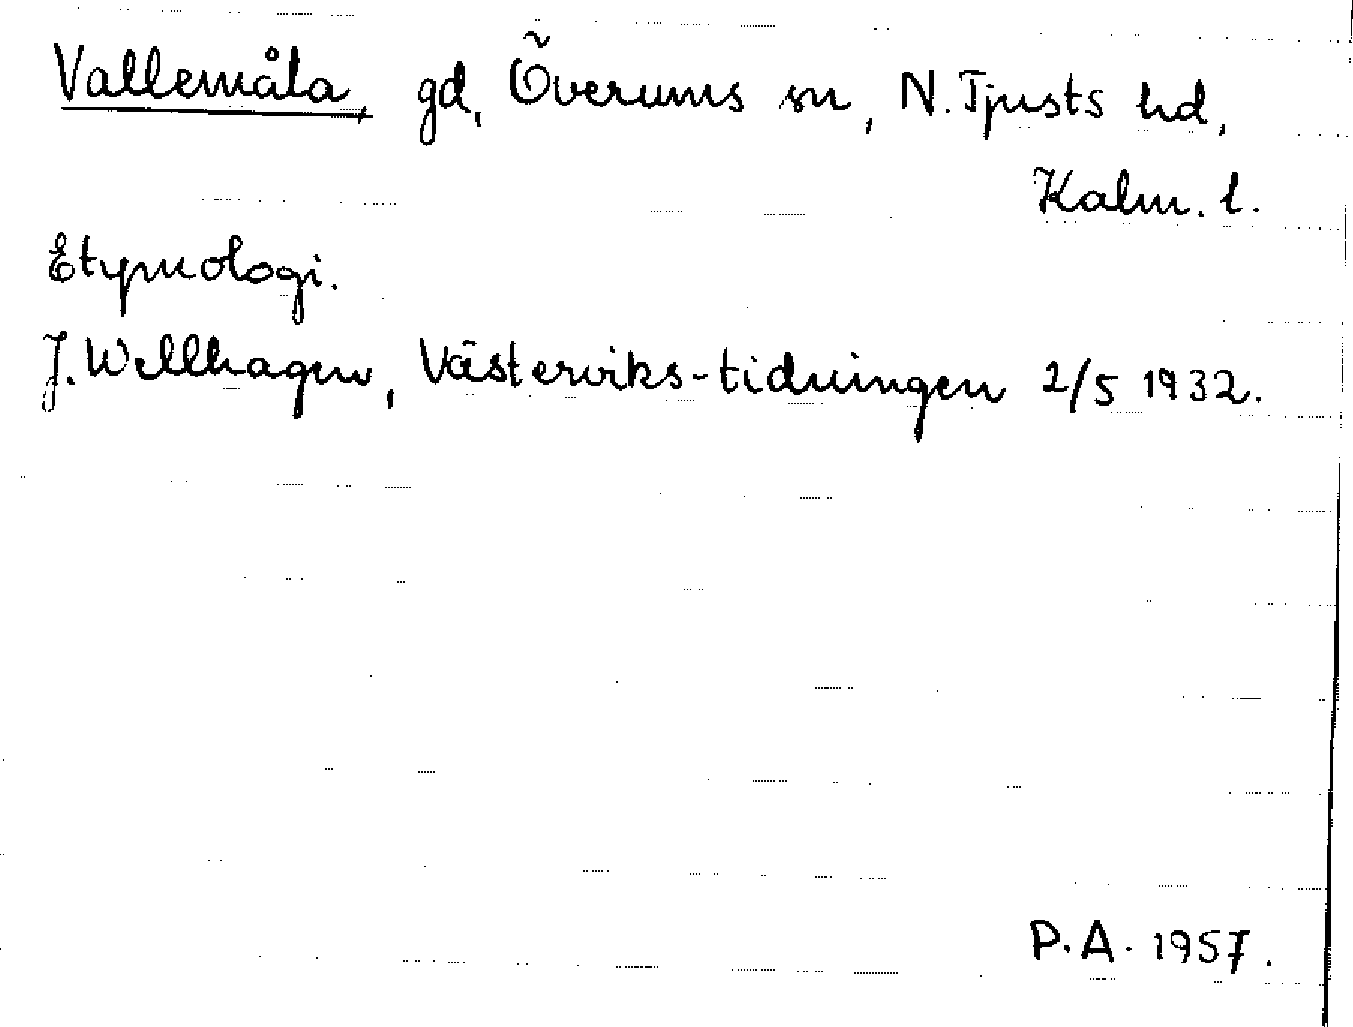 Vallemåla, gd, Överums sn, N. Tjusts hd,
Kalm. l.
Etymologi.
J. Wellhagen, Västerviks-tidningen 2/5 1932.
P.A. 1957.